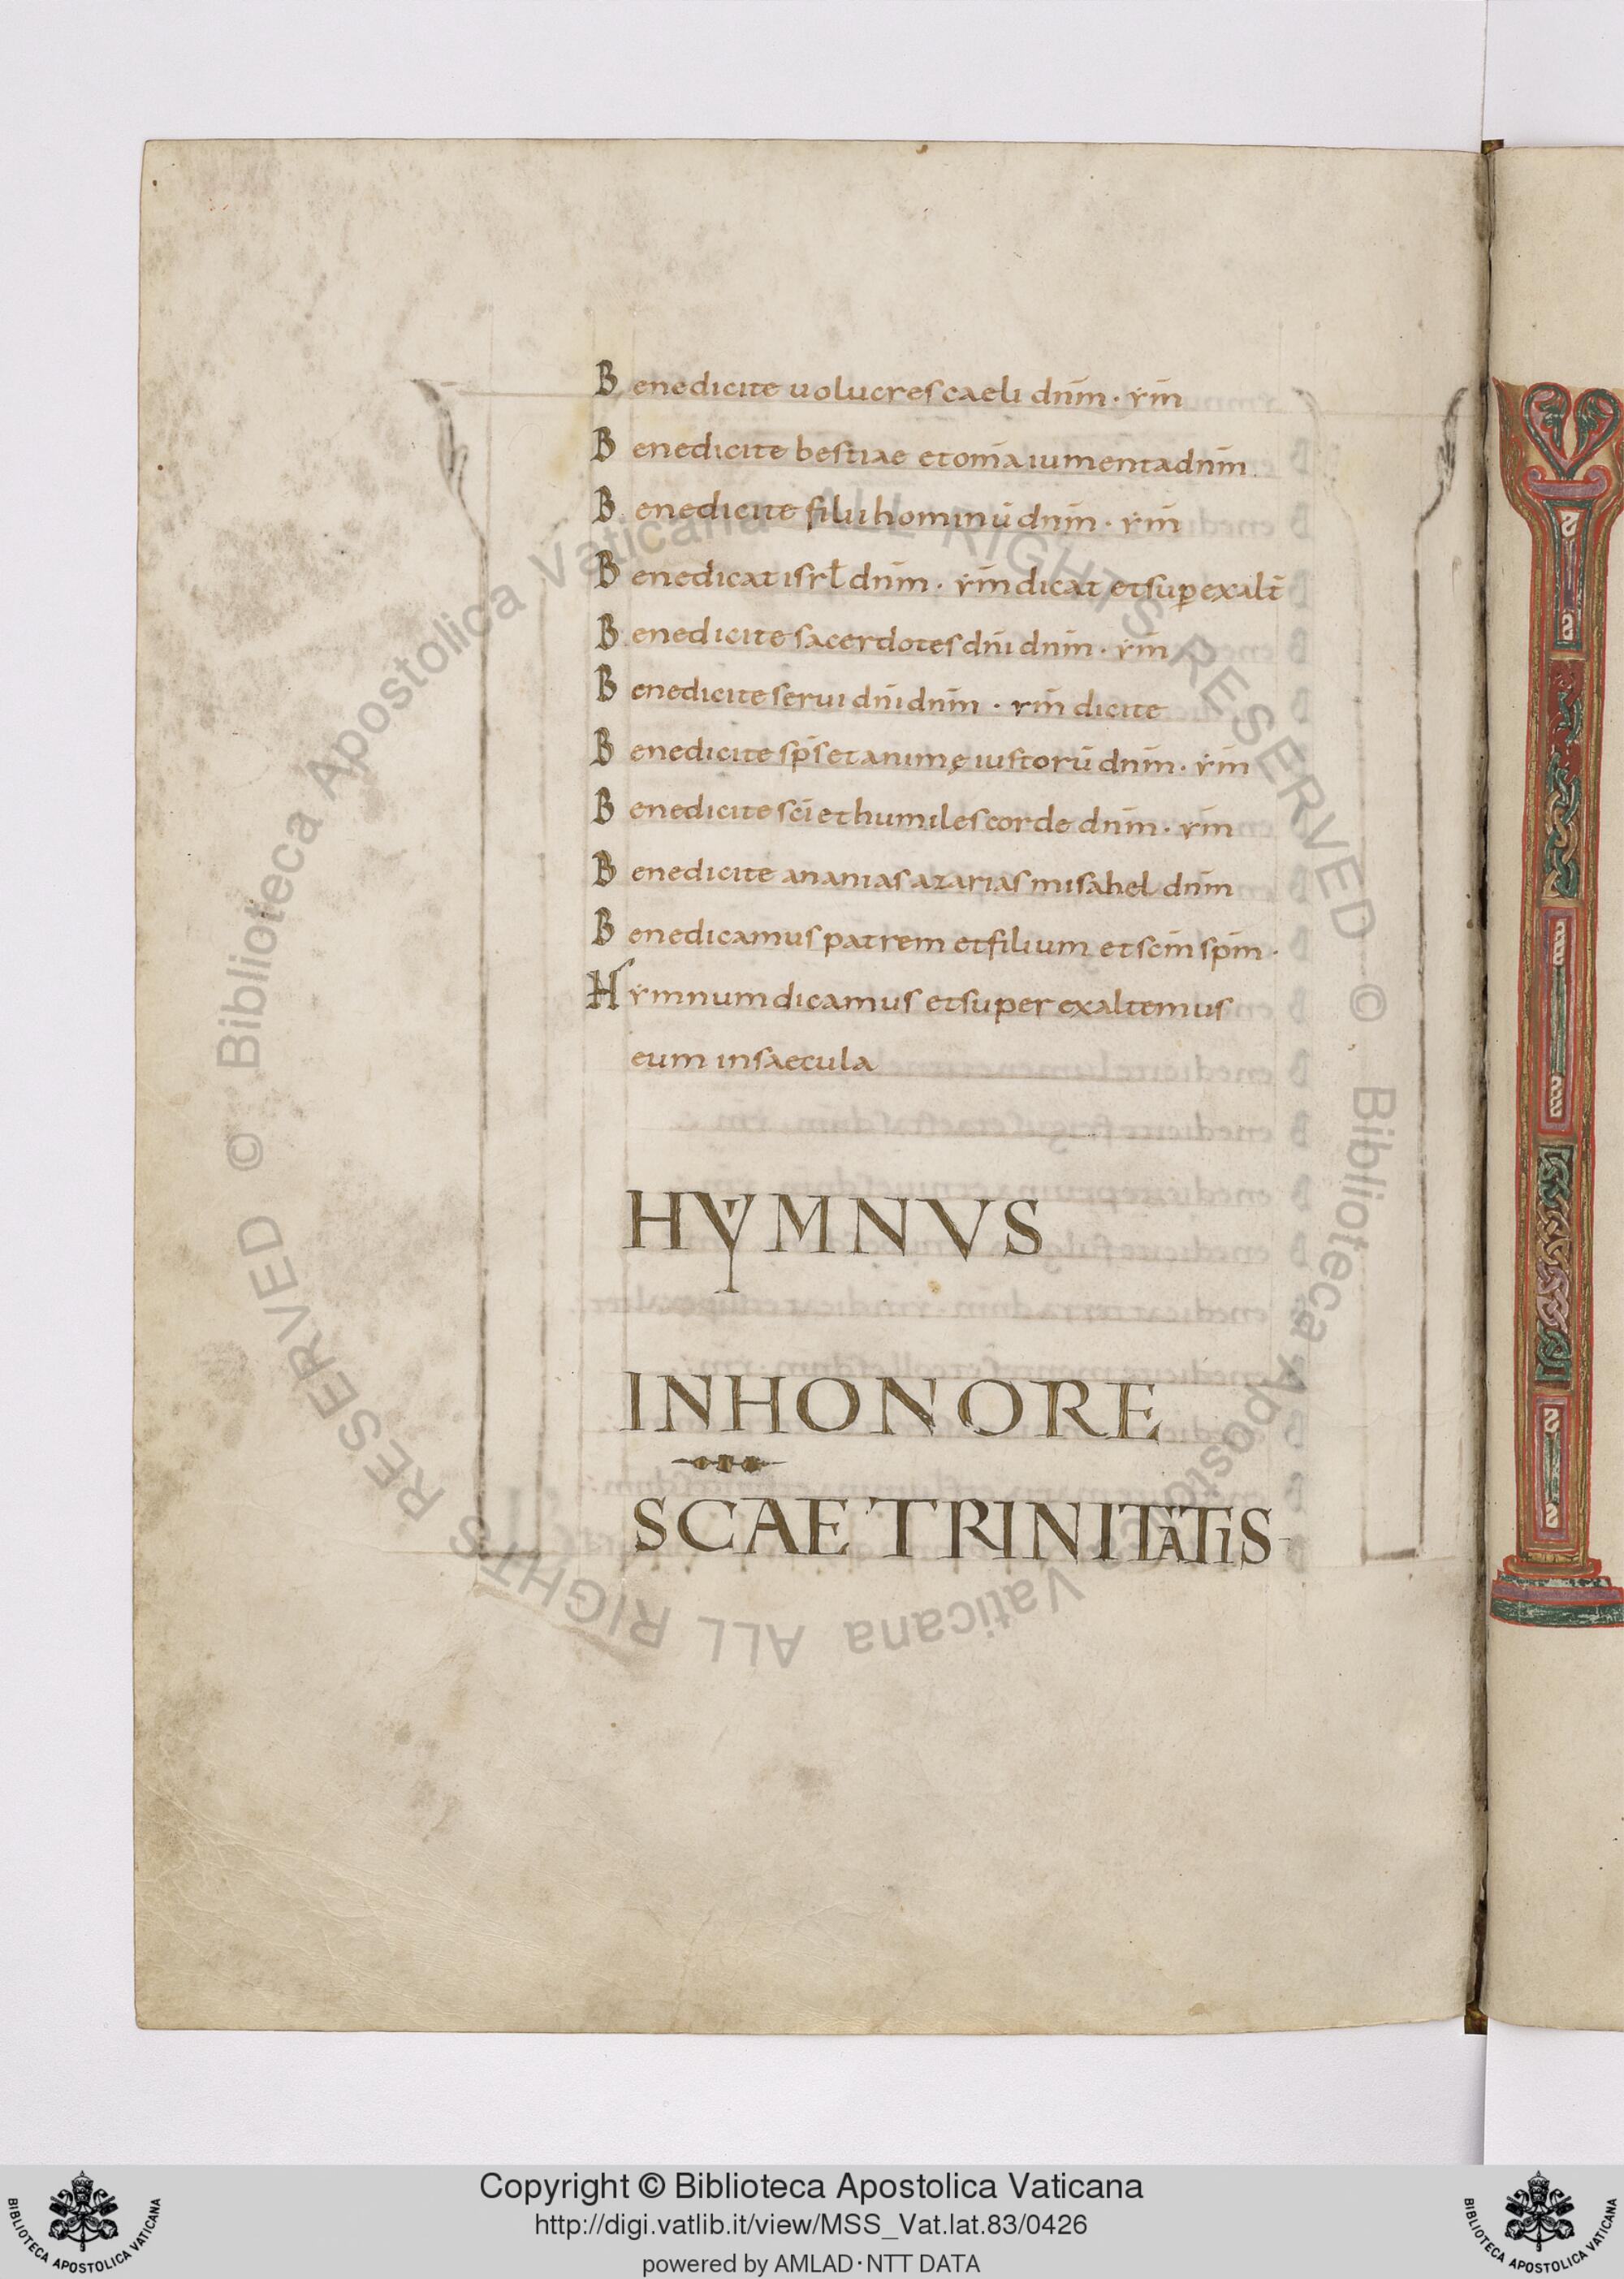 Benedicite uolucres caeli dnm̄ · ẏm̄
Benedicite bestiae et om̄a iumenta dnm̄
Benedicite filii hominū dnm̄ · ẏm̄
Benedicat isrł dnm̄ · ẏm̄ dicat et sup̲exalt̄
Benedicite sacerdotes dnī dnm̄ · ẏm̄
Benedicite serui dnī dnm̄ · ẏm̄ dicite
Benedicite sp̄s et animę iustorū dnm̄ · ẏm̄
Benedicite scī et humiles corde dnm̄ · ẏm̄
Benedicite ananias azarias misahel dnm̄
Benedicamus patrem et filium et scm̄ spm̄ ·
Hẏmnum dicamus et super exaltemus
eum in saecula
HYMNVS
IN HONORE
SCAE TRINITATIS
© Biblioteca Apostolica Vaticana ALL RIGHTS RESERVED
© Biblioteca Apostolica Vaticana ALL RIGHTS RESERVED
Copyright © Biblioteca Apostolica Vaticana
http://digi.vatlib.it/view/MSS_Vat.lat.83/0426
powered by AMLAD·NTT DATA
BIBLIOTECA APOSTOLICA VATICANA
BIBLIOTECA APOSTOLICA VATICANA